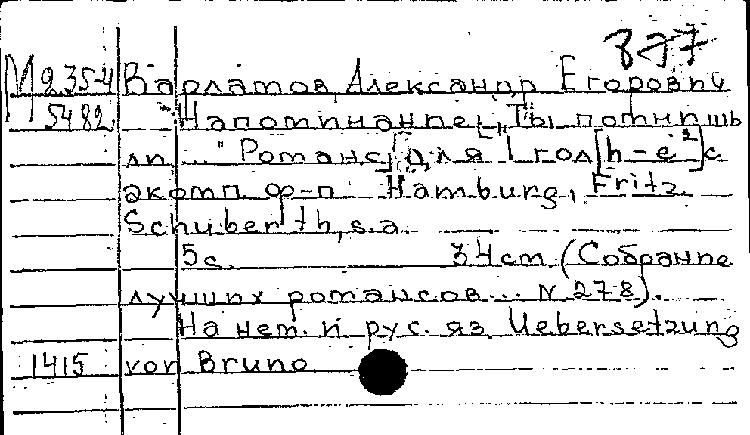 327
М 235-4 Варламов, Александр Егорович
5482 Напоминание. „Ты помнишь
ли ..." Романс [для 1 гол[h-e²] с
акомп. ф-п. Hamburg, Fritz
Schuberth, s.a.
5 с. 34 cm. (Собрание
лучших романсов... N 278).
На нем. и рус. яз. Uebersetzung
1415 von Bruno